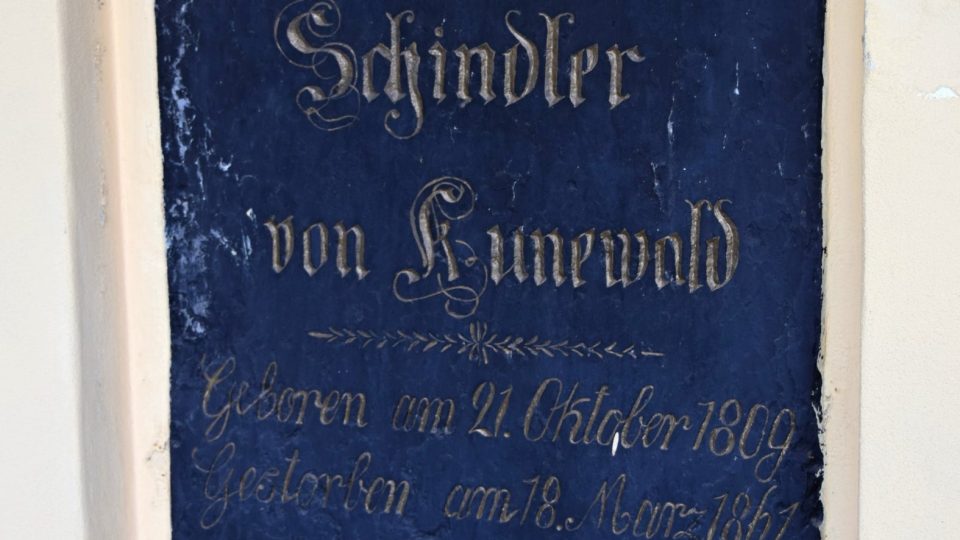 Schindler
von Kunewald
Geboren am 21. Oktober 1809.
Gestorben am 18. Marz 1861